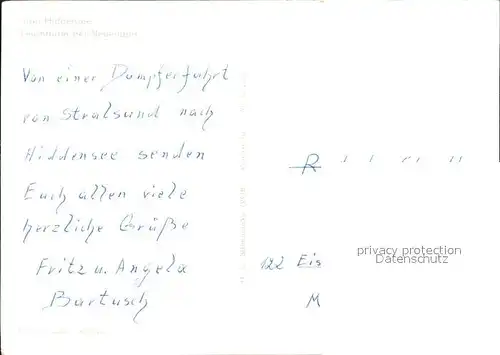 Insel Hiddensee
Leuchtturm bei Neuendorf
Von einer Dampferfahrt
von Stralsund nach
Hiddensee senden
Euch allen viele
herzliche Grüße
Fritz u. Angela
Bartusch
R
122 Eis
M
privacy protection
Datenschutz